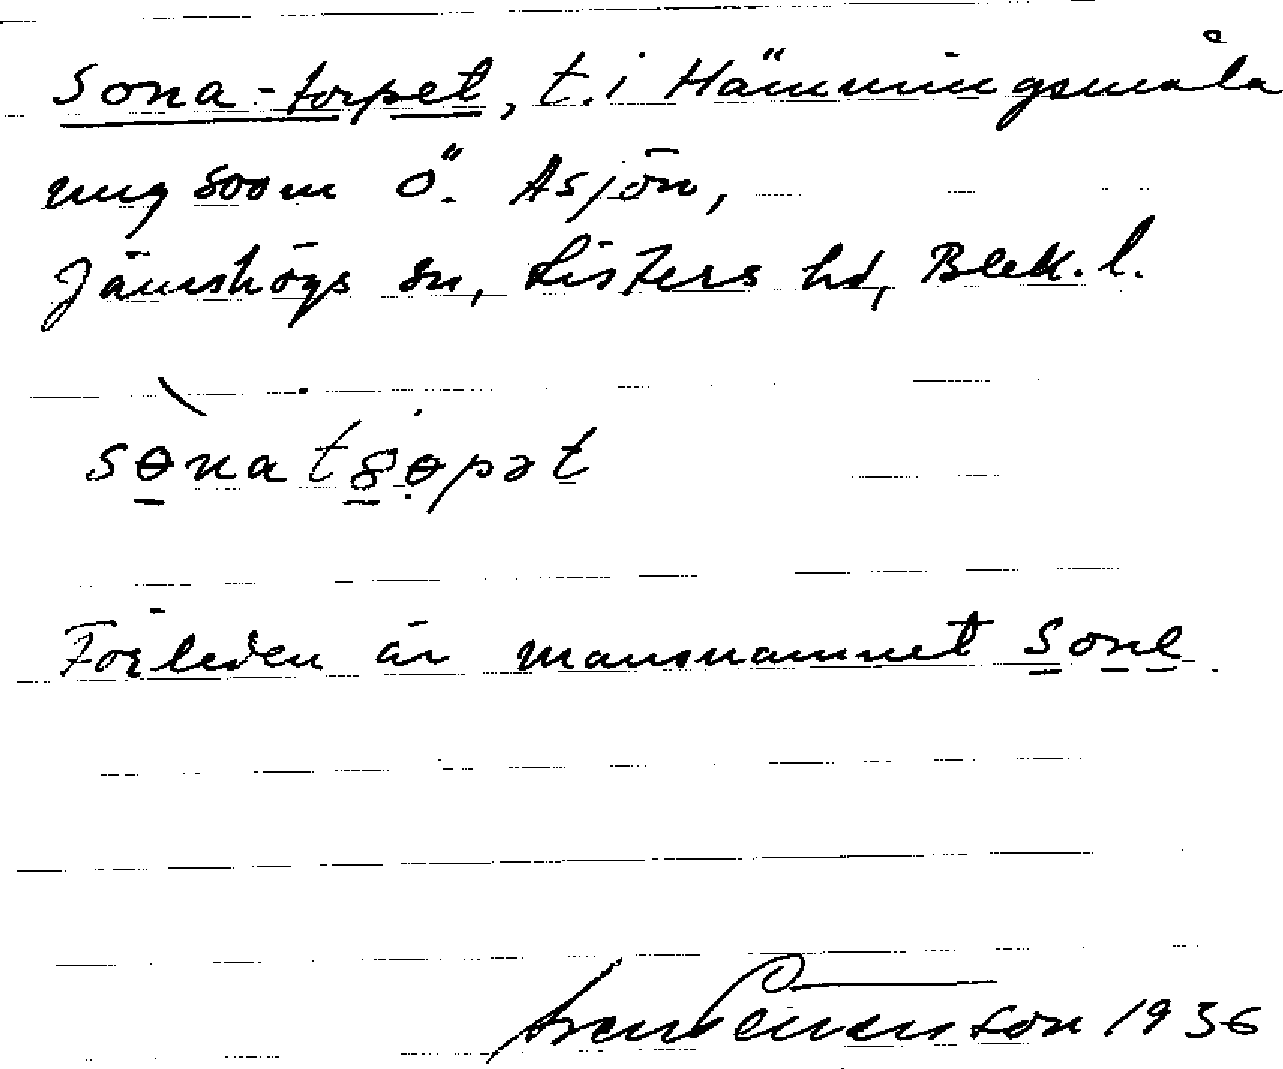 Sona-torpet, t. i Hämmingsmåla
ung 800 m Ö. Asjön,
Jämshögs sn, Listers hd, Blek. l.
sɵnatȣɵpət
Förleden är mansnamnet Sone.
1936